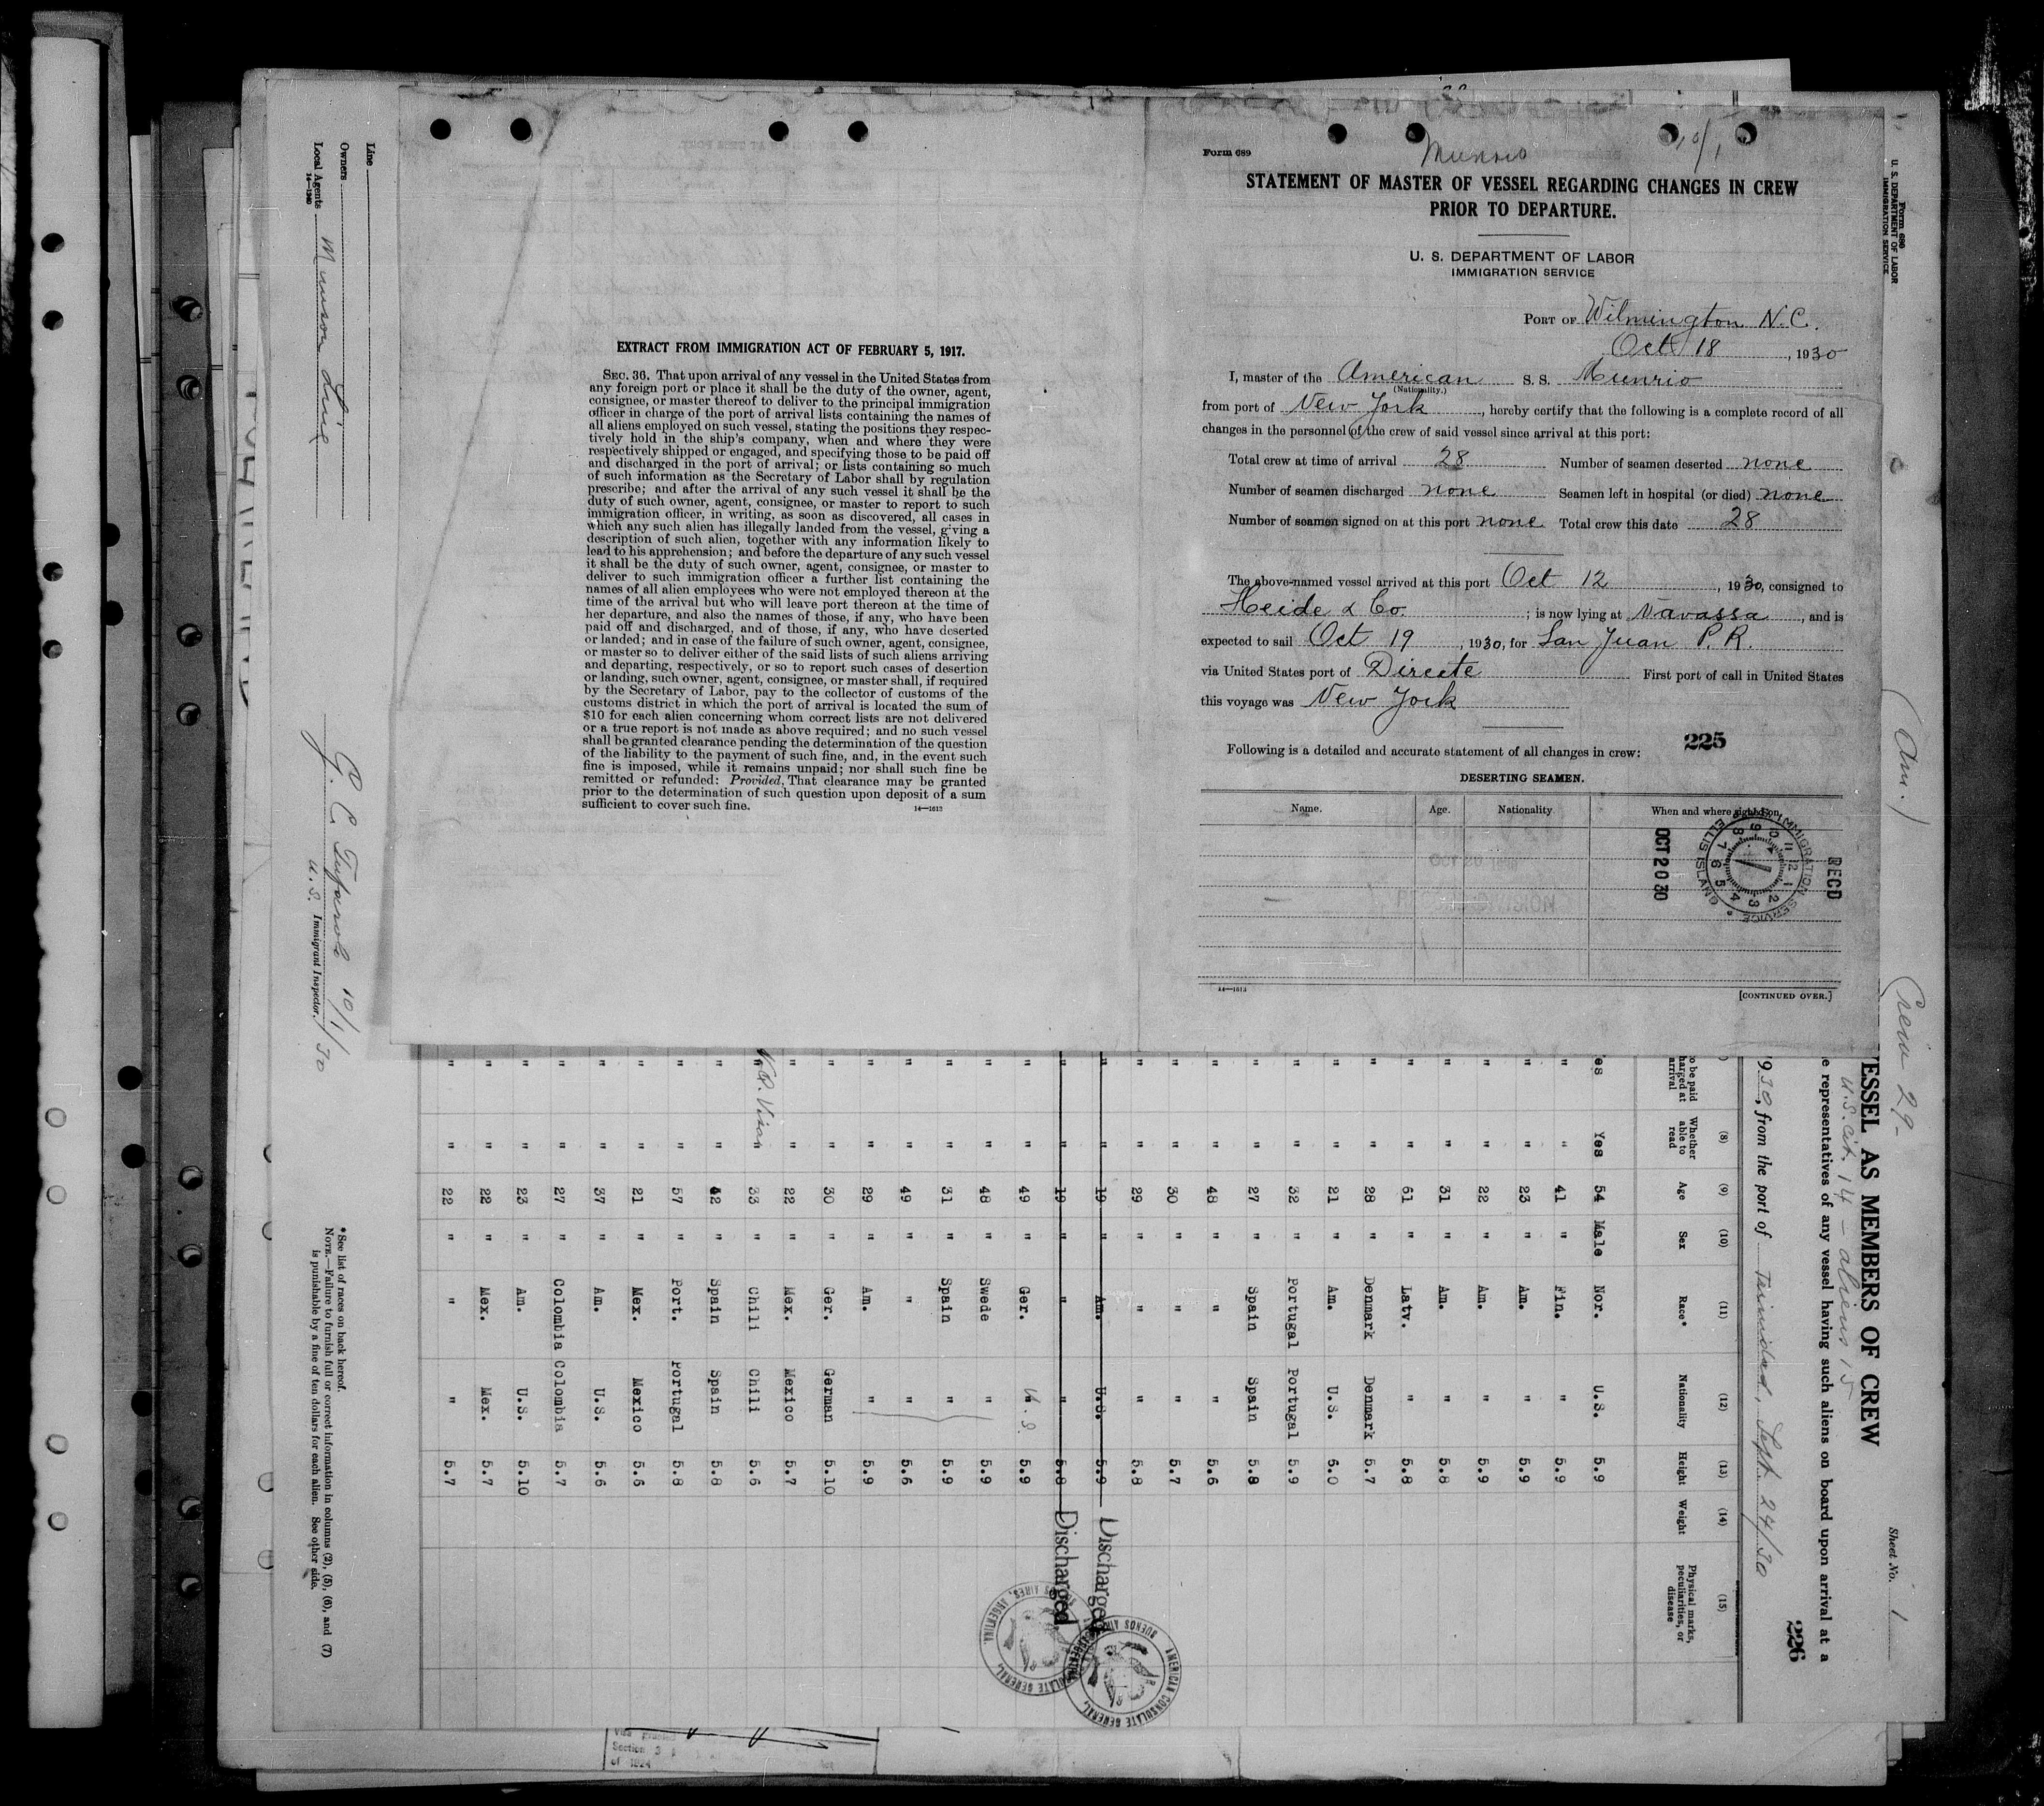 Form 689
Munrio
10/1
STATEMENT OF MASTER OF VESSEL REGARDING CHANGES IN CREW
PRIOR TO DEPARTURE.
U. S. DEPARTMENT OF LABOR
IMMIGRATION SERVICE
PORT OF Wilmington N.C.
Oct 18, 1930
I, master of the American S. S. Munrio
(Nationality.)
from port of New York, hereby certify that the following is a complete record of all
changes in the personnel of the crew of said vessel since arrival at this port:
Total crew at time of arrival 28 Number of seamen deserted none
Number of seamen discharged none Seamen left in hospital (or died) none
Number of seamen signed on at this port none Total crew this date 28
The above-named vessel arrived at this port Oct 12, 1930, consigned to
Heide & Co.; is now lying at Navassa, and is
expected to sail Oct 19, 1930, for San Juan P. R.
via United States port of Directe First port of call in United States
this voyage was New York
225
Following is a detailed and accurate statement of all changes in crew:
DESERTING SEAMEN.
Name. Age. Nationality. When and where signed on.
RECD
IMMIGRATION SERVICE ELLIS ISLAND
OCT 20 30
14—1613
[CONTINUED OVER.]
EXTRACT FROM IMMIGRATION ACT OF FEBRUARY 5, 1917.
SEC. 36. That upon arrival of any vessel in the United States from
any foreign port or place it shall be the duty of the owner, agent,
consignee, or master thereof to deliver to the principal immigration
officer in charge of the port of arrival lists containing the names of
all aliens employed on such vessel, stating the positions they respec-
tively hold in the ship's company, when and where they were
respectively shipped or engaged, and specifying those to be paid off
and discharged in the port of arrival; or lists containing so much
of such information as the Secretary of Labor shall by regulation
prescribe; and after the arrival of any such vessel it shall be the
duty of such owner, agent, consignee, or master to report to such
immigration officer, in writing, as soon as discovered, all cases in
which any such alien has illegally landed from the vessel, giving a
description of such alien, together with any information likely to
lead to his apprehension; and before the departure of any such vessel
it shall be the duty of such owner, agent, consignee, or master to
deliver to such immigration officer a further list containing the
names of all alien employees who were not employed thereon at the
time of the arrival but who will leave port thereon at the time of
her departure, and also the names of those, if any, who have been
paid off and discharged, and of those, if any, who have deserted
or landed; and in case of the failure of such owner, agent, consignee,
or master so to deliver either of the said lists of such aliens arriving
and departing, respectively, or so to report such cases of desertion
or landing, such owner, agent, consignee, or master shall, if required
by the Secretary of Labor, pay to the collector of customs of the
customs district in which the port of arrival is located the sum of
$10 for each alien concerning whom correct lists are not delivered
or a true report is not made as above required; and no such vessel
shall be granted clearance pending the determination of the question
of the liability to the payment of such fine, and, in the event such
fine is imposed, while it remains unpaid; nor shall such fine be
remitted or refunded: Provided, That clearance may be granted
prior to the determination of such question upon deposit of a sum
sufficient to cover such fine.
14—1613
Form 680
U. S. DEPARTMENT OF LABOR
IMMIGRATION SERVICE
(Am.) Crew 29-
Sheet No. 1
ESSEL AS MEMBERS OF CREW
U.S. Cit. 14 - aliens 15
e representatives of any vessel having such aliens on board upon arrival at a
226
930, from the port of Trinidad, Sept. 24/30
(8) (9) (10) (11) (12) (13) (14) (15)
o be paid harged at arrival Whether able to read Age Sex Race* Nationality Height Weight Physical marks, peculiarities, or disease
es Yes 54 Male Nor. U.S. 5.9
" " 41 " Fin. " 5.9
" " 23 " Am. " 5.9
" " 22 " Am. " 5.9
" " 31 " Am. " 5.8
" " 61 " Latv. " 5.8
" " 28 " Denmark Denmark 5.7
" " 21 " Am. U.S. 6.0
" " 32 " Portugal Portugal 5.9
" " 27 " Spain Spain 5.8
" " 48 " " " 5.6
" " 30 " " " 5.7
" " 29 " " " 5.8
" " 19 " Am. U.S. 5.9 Discharged
" " 19 " " " 5.8 Discharged
" " 49 " Ger. U.S. 5.9
" " 48 " Swede " 5.9
" " 31 " Spain " 5.9
" " 49 " " " 5.6
" " 29 " Am. " 5.9
" " 30 " Ger. German 5.10
" " 22 " Mex. Mexico 5.7
" " 33 " Chili Chili 5.6
" " 42 " Spain Spain 5.8
" " 57 " Port. Portugal 5.8
" " 21 " Mex. Mexico 5.6
" " 37 " Am. U.S. 5.6
" " 27 " Colombia Colombia 5.7
" " 23 " Am. U.S. 5.10
" " 22 " Mex. Mex. 5.7
" " 22 " " " 5.7
AMERICAN CONSULATE GENERAL, BUENOS AIRES, ARGENTINA
AMERICAN CONSULATE GENERAL, BUENOS AIRES
Line
Owners
Local Agents Munson Line
14—1240
10/1/30
U.S. Immigrant Inspector.
*See list of races on back hereof.
NOTE.—Failure to furnish full or correct information in columns (2), (5), (6), and (7)
is punishable by a fine of ten dollars for each alien. See other side.
Section 3
of 1924